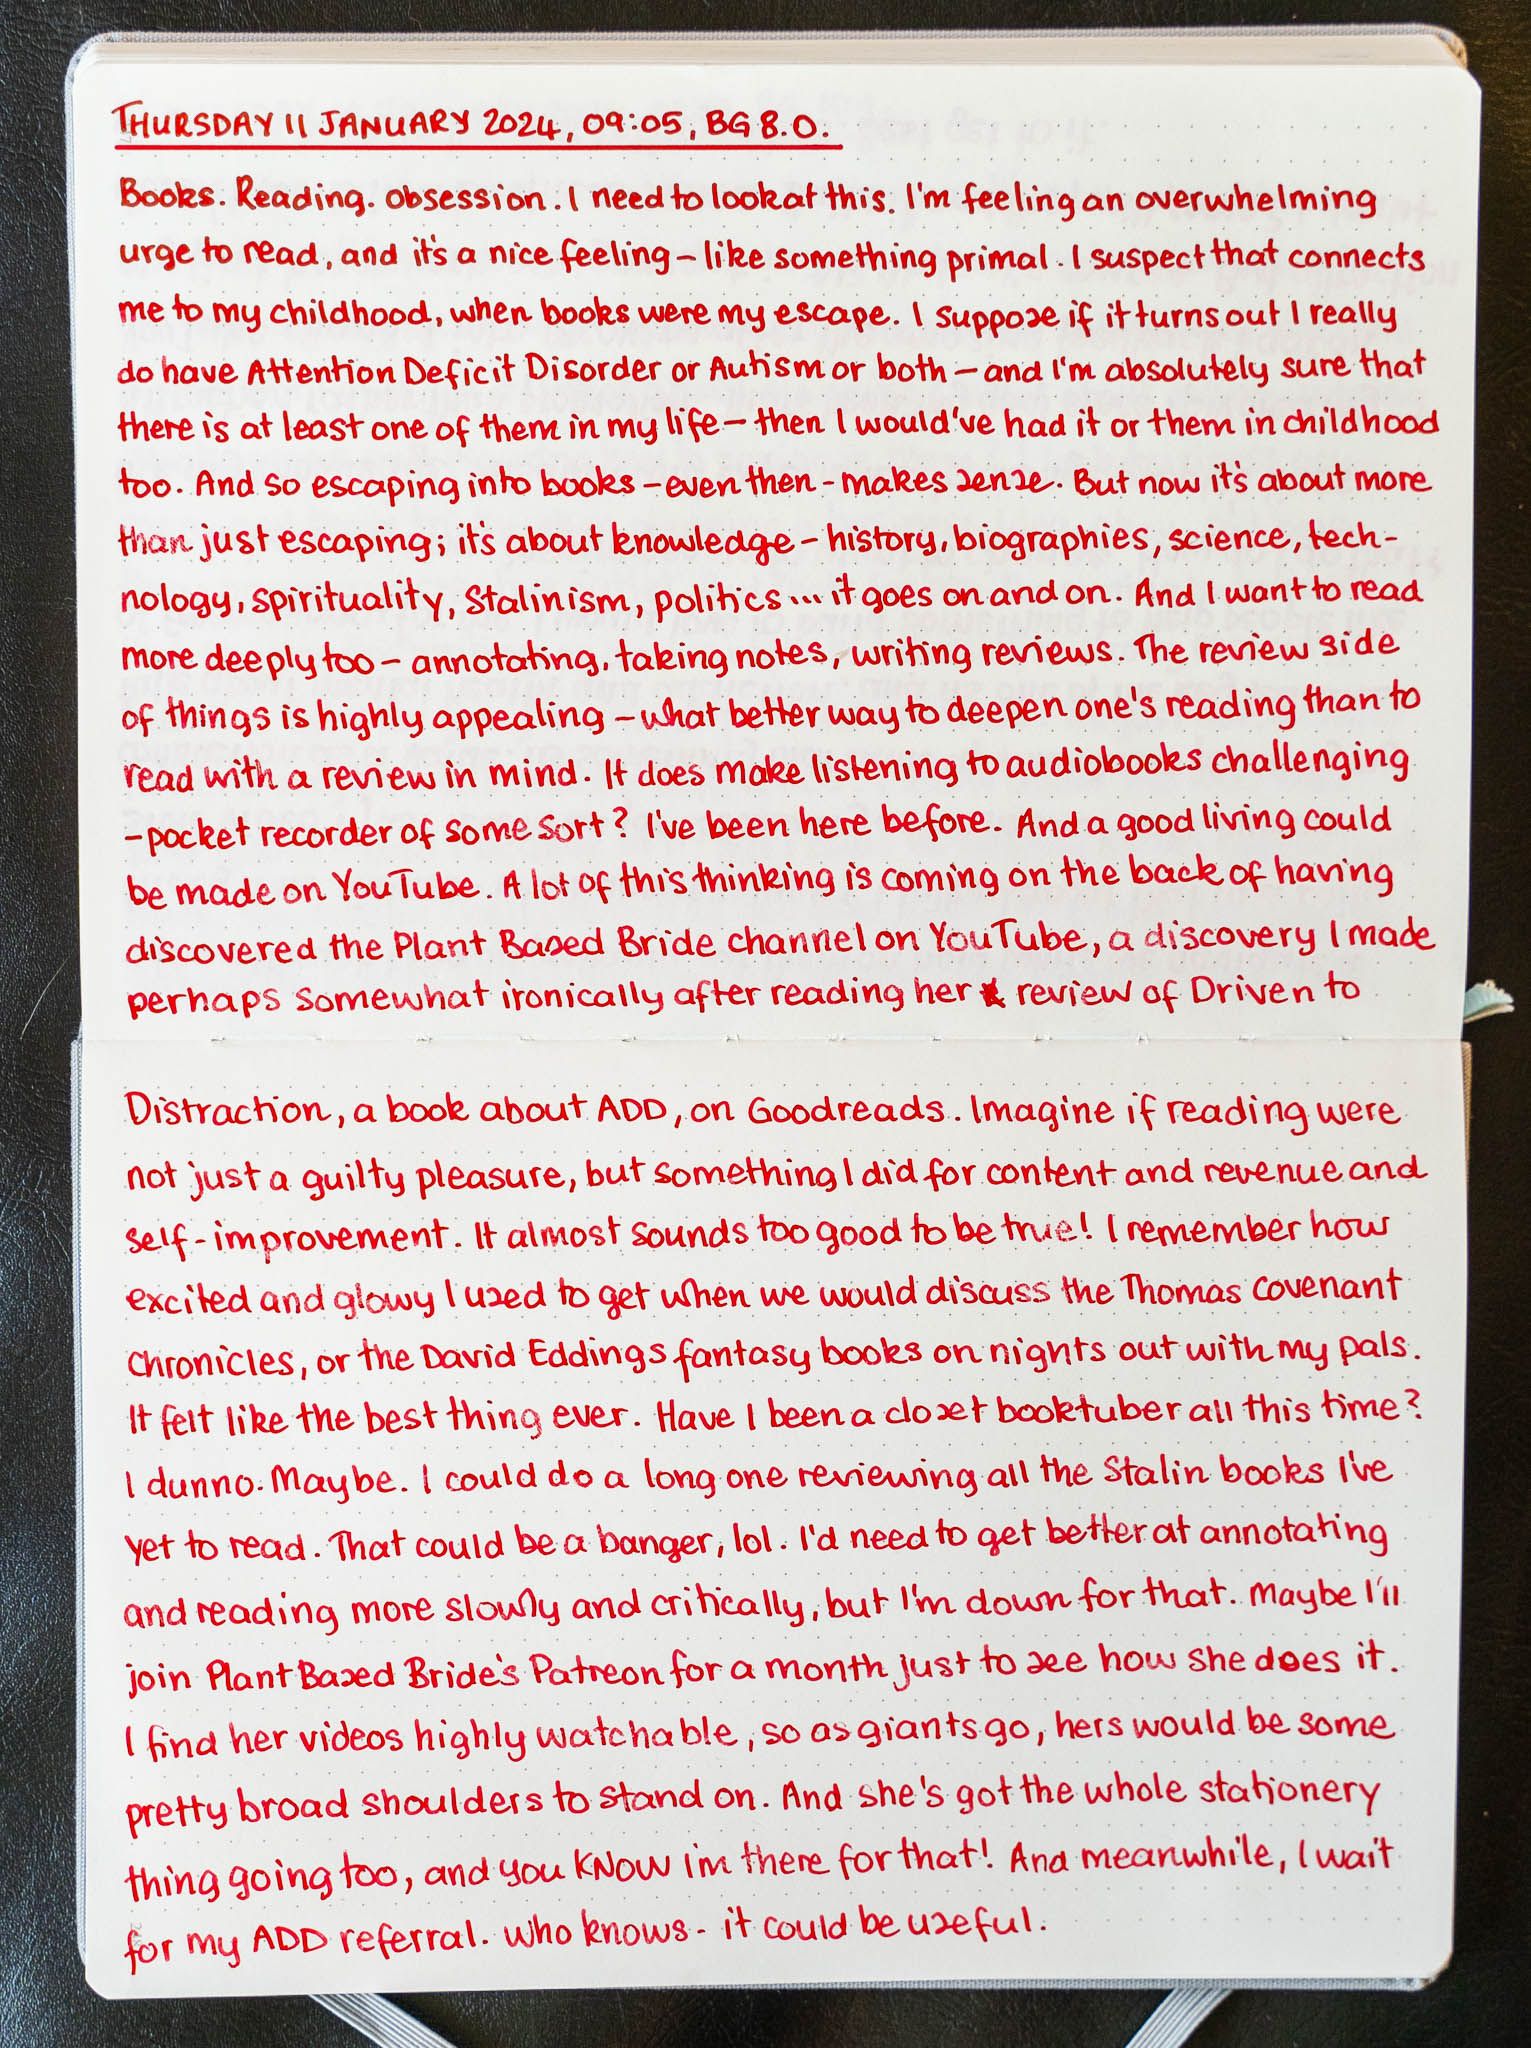 THURSDAY 11 JANUARY 2024, 09:05, BG 8.0.
Books. Reading. Obsession. I need to look at this. I'm feeling an overwhelming
urge to read, and it's a nice feeling – like something primal. I suspect that connects
me to my childhood, when books were my escape. I suppose if it turns out I really
do have Attention Deficit Disorder or Autism or both – and I'm absolutely sure that
there is at least one of them in my life – then I would've had it or them in childhood
too. And so escaping into books – even then – makes sense. But now it's about more
than just escaping; it's about knowledge – history, biographies, science, tech-
nology, spirituality, Stalinism, politics... it goes on and on. And I want to read
more deeply too – annotating, taking notes, writing reviews. The review side
of things is highly appealing – what better way to deepen one's reading than to
read with a review in mind. It does make listening to audiobooks challenging
– pocket recorder of some sort? I've been here before. And a good living could
be made on YouTube. A lot of this thinking is coming on the back of having
discovered the Plant Based Bride channel on YouTube, a discovery I made
perhaps somewhat ironically after reading her review of Driven to
Distraction, a book about ADD, on Goodreads. Imagine if reading were
not just a guilty pleasure, but something I did for content and revenue and
self-improvement. It almost sounds too good to be true! I remember how
excited and glowy I used to get when we would discuss the Thomas Covenant
Chronicles, or the David Eddings fantasy books on nights out with my pals.
It felt like the best thing ever. Have I been a closet booktuber all this time?
I dunno. Maybe. I could do a long one reviewing all the Stalin books I've
yet to read. That could be a banger, lol. I'd need to get better at annotating
and reading more slowly and critically, but I'm down for that. Maybe I'll
join Plant Based Bride's Patreon for a month just to see how she does it.
I find her videos highly watchable, so as giants go, hers would be some
pretty broad shoulders to stand on. And she's got the whole stationery
thing going too, and you KNOW I'm there for that! And meanwhile, I wait
for my ADD referral. Who knows – it could be useful.